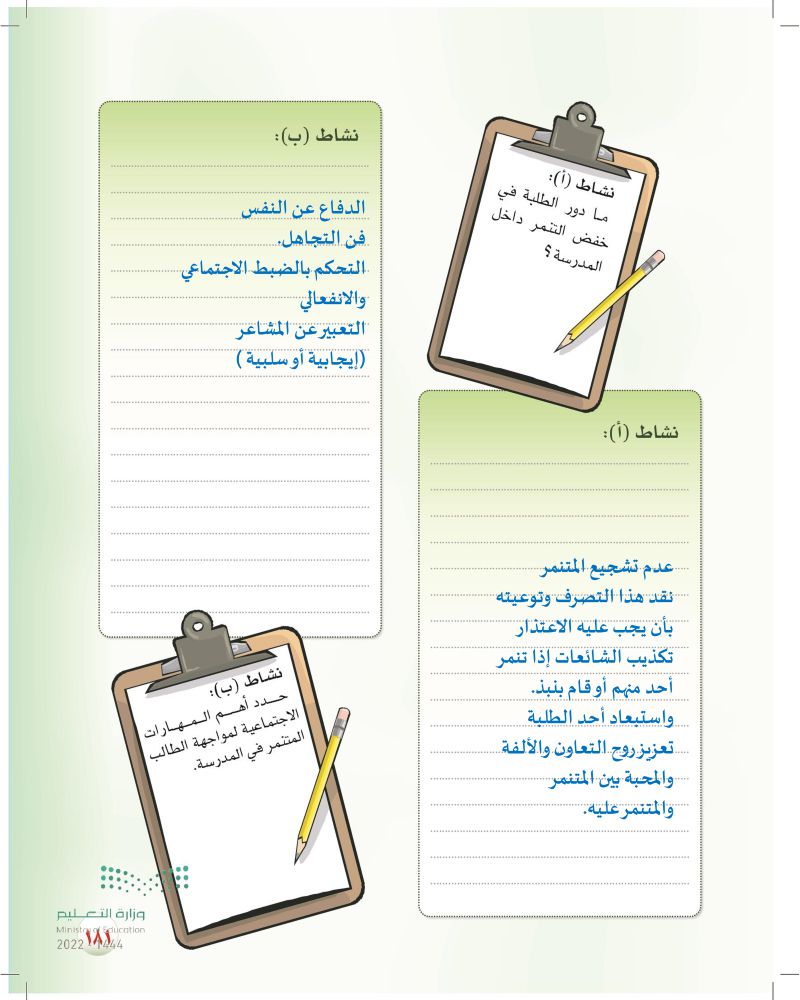 نشاط (أ):
ما دور الطلبة في
خفض التنمر داخل
المدرسة؟
نشاط (أ):
عدم تشجيع المتنمر
نقد هذا التصرف وتوعيته
بأن يجب عليه الاعتذار
تكذيب الشائعات إذا تنمر
أحد منهم أو قام بنبذ.
واستبعاد أحد الطلبة
تعزيز روح التعاون والألفة
والمحبة بين المتنمر
والمتنمر عليه.
نشاط (ب):
الدفاع عن النفس
فن التجاهل.
التحكم بالضبط الاجتماعي
والانفعالي
التعبير عن المشاعر
(إيجابية أو سلبية )
نشاط (ب):
حـــدد أهـــم الـمـهـارات
الاجتماعية لمواجهة الطالب
المتنمر في المدرسة.
وزارة التعليم
Ministry of Education
١٨١
2022 - 1444